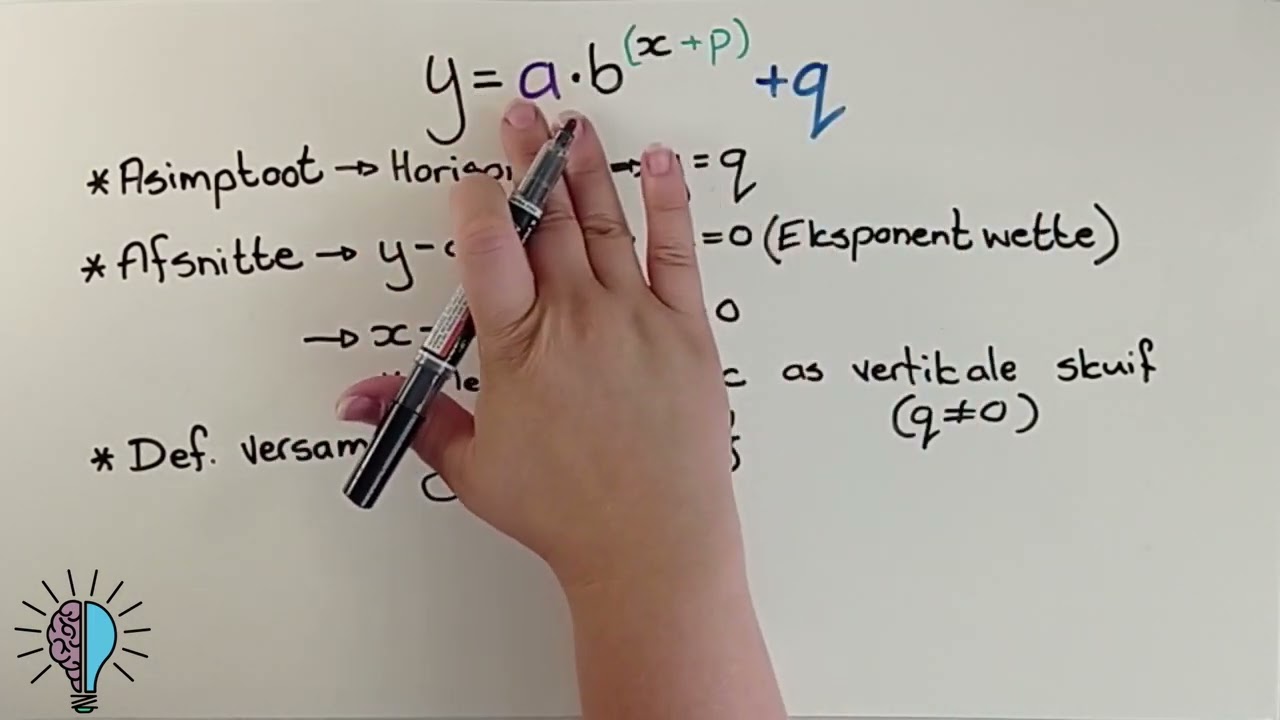 y = a · b^(x + p) + q
* Asimptoot → Horison → = q
* Afsnitte → y - = 0 (Eksponent wette)
→ x - 0
as vertikale skuif
(q ≠ 0)
* Def. versam